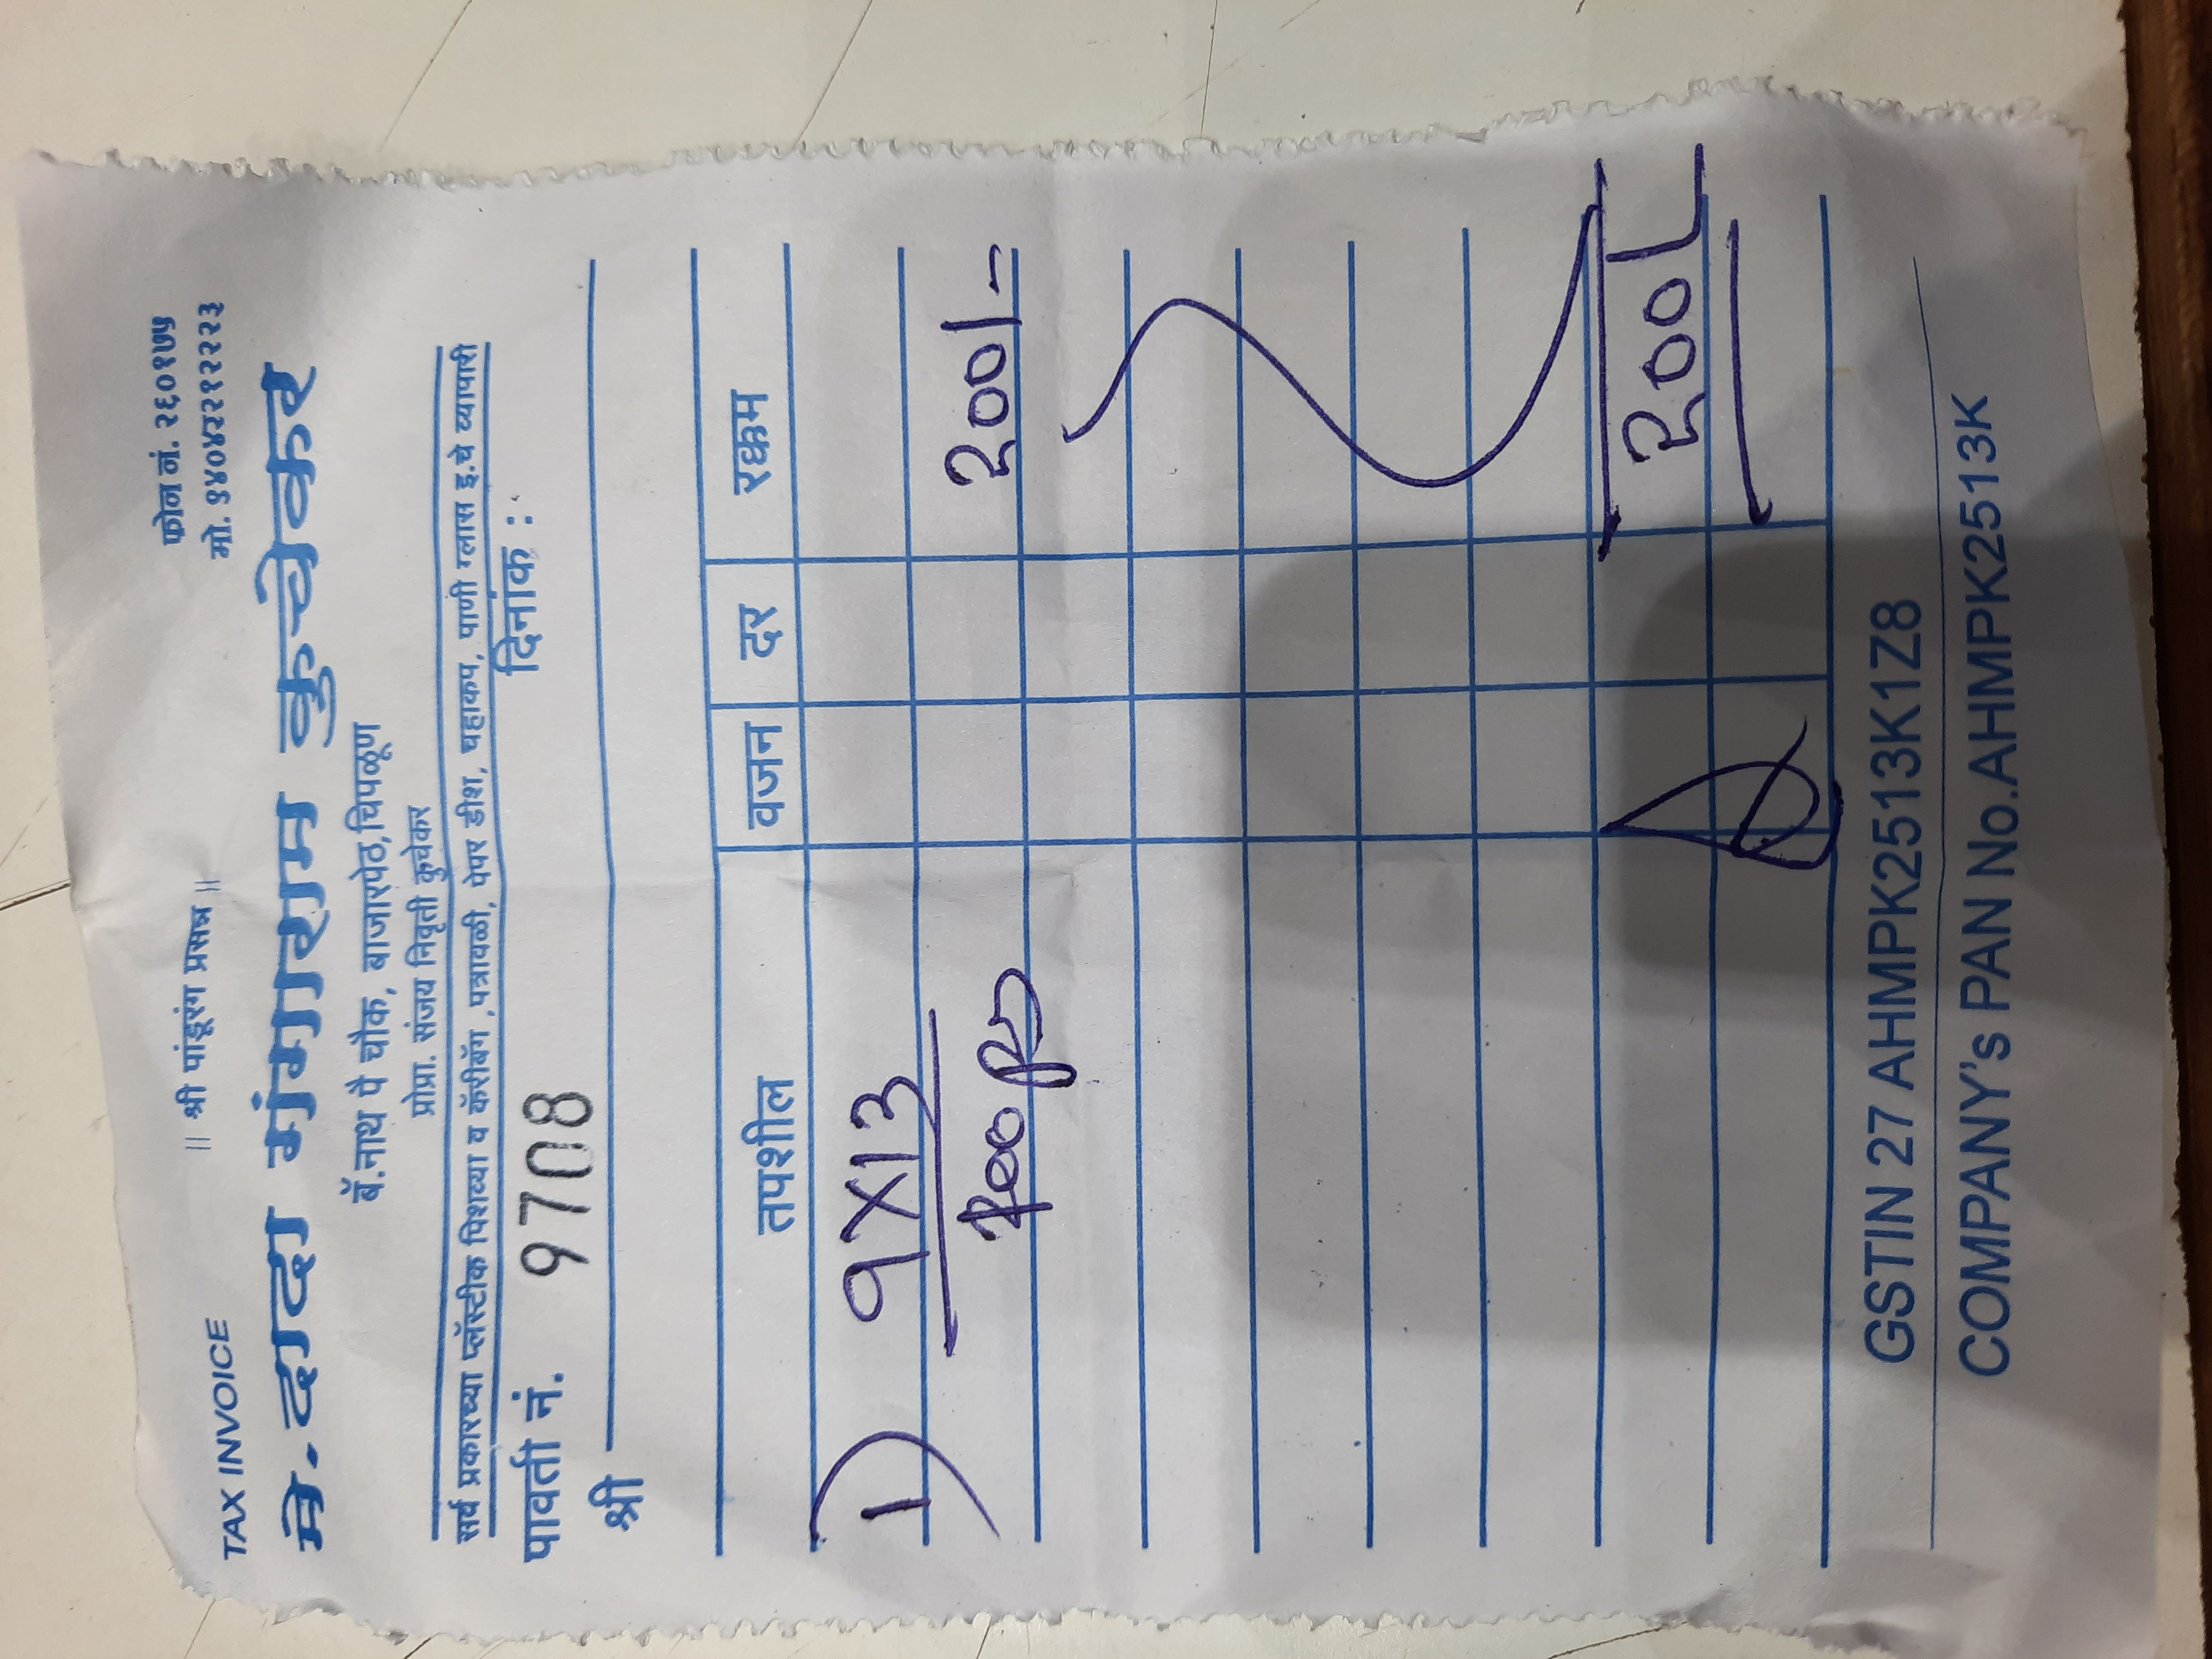 || श्री पांडूरंग प्रसन्न ||
फोन नं. २६०१७५
TAX INVOICE
मो. ९४०४२२१२२२३
मे. दादा गंगाराम कुचेकर
बॅ.नाथ पै चौक, बाजारपेठ,चिपळूण
प्रोप्रा. संजय निवृती कुचेकर
सर्व प्रकारच्या प्लॅस्टीक पिशव्या व कॅरीबॅग ,पत्रावळी, पेपर डीश, चहाकप, पाणी ग्लास इ.चे व्यापारी
पावती नं. 9708 दिनांक :
श्री
तपशील वजन दर रक्कम
1) 9X13
200/-
200/-
GSTIN 27 AHMPK2513K1Z8
COMPANY's PAN No.AHMPK2513K